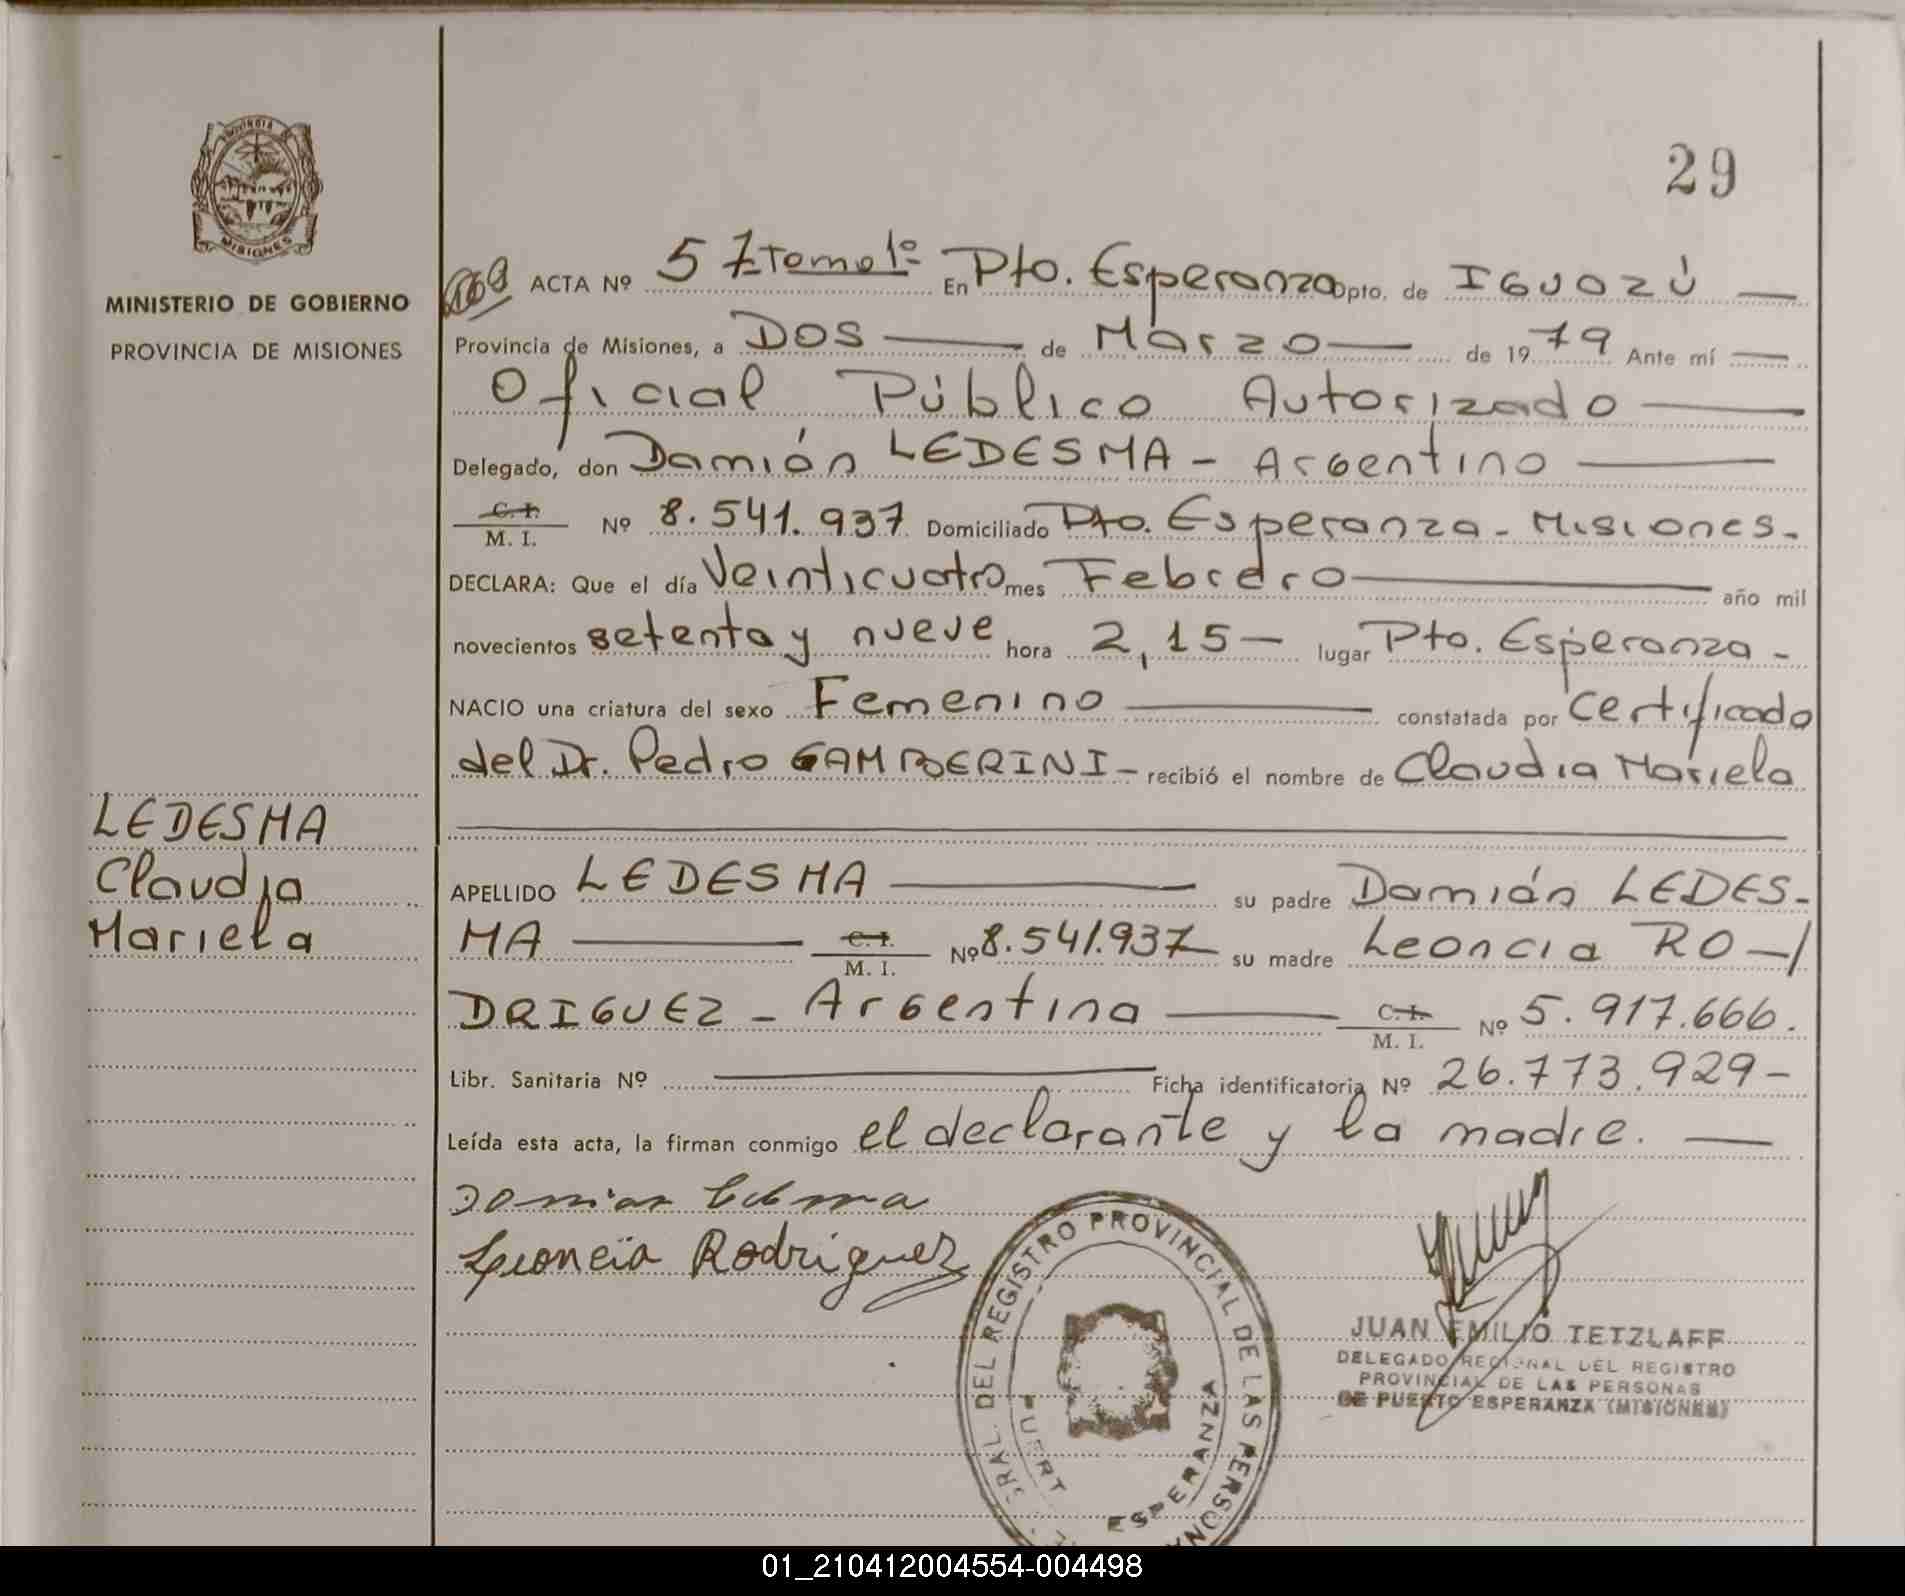 29
PROVINCIA DE
MISIONES
MINISTERIO DE GOBIERNO
PROVINCIA DE MISIONES
ACTA Nº 57 Tomo 1º En Pto. Esperanza Dpto. de IGUAZÚ —
Provincia de Misiones, a DOS — de Marzo — de 1979 Ante mí —
Oficial Público Autorizado —
Delegado, don Damián LEDESMA - Argentino —
C. I.
M. I. Nº 8.541.937 Domiciliado Pto. Esperanza - Misiones -
DECLARA: Que el día Veinticuatro mes Febrero — año mil
novecientos setenta y nueve hora 2,15 — lugar Pto. Esperanza -
NACIO una criatura del sexo Femenino — constatada por certificado
del Dr. Pedro GAMBERINI - recibió el nombre de Claudia Mariela
LEDESMA
Claudia
Mariela
APELLIDO LEDESMA — su padre Damián LEDES-
MA — C. I. M. I. Nº 8.541.937 su madre Leoncia RO-/
DRIGUEZ - Argentina — C. I. M. I. Nº 5.917.666.
Libr. Sanitaria Nº — Ficha identificatoria Nº 26.773.929 -
Leída esta acta, la firman conmigo el declarante y la madre. —
Leoncia Rodriguez
REGISTRO PROVINCIAL DE LAS PERSONA
ESPERANZA
JUAN EMILIO TETZLAFF
DELEGADO REGIONAL DEL REGISTRO
PROVINCIAL DE LAS PERSONAS
DE PUERTO ESPERANZA (MISIONES)
01_210412004554-004498